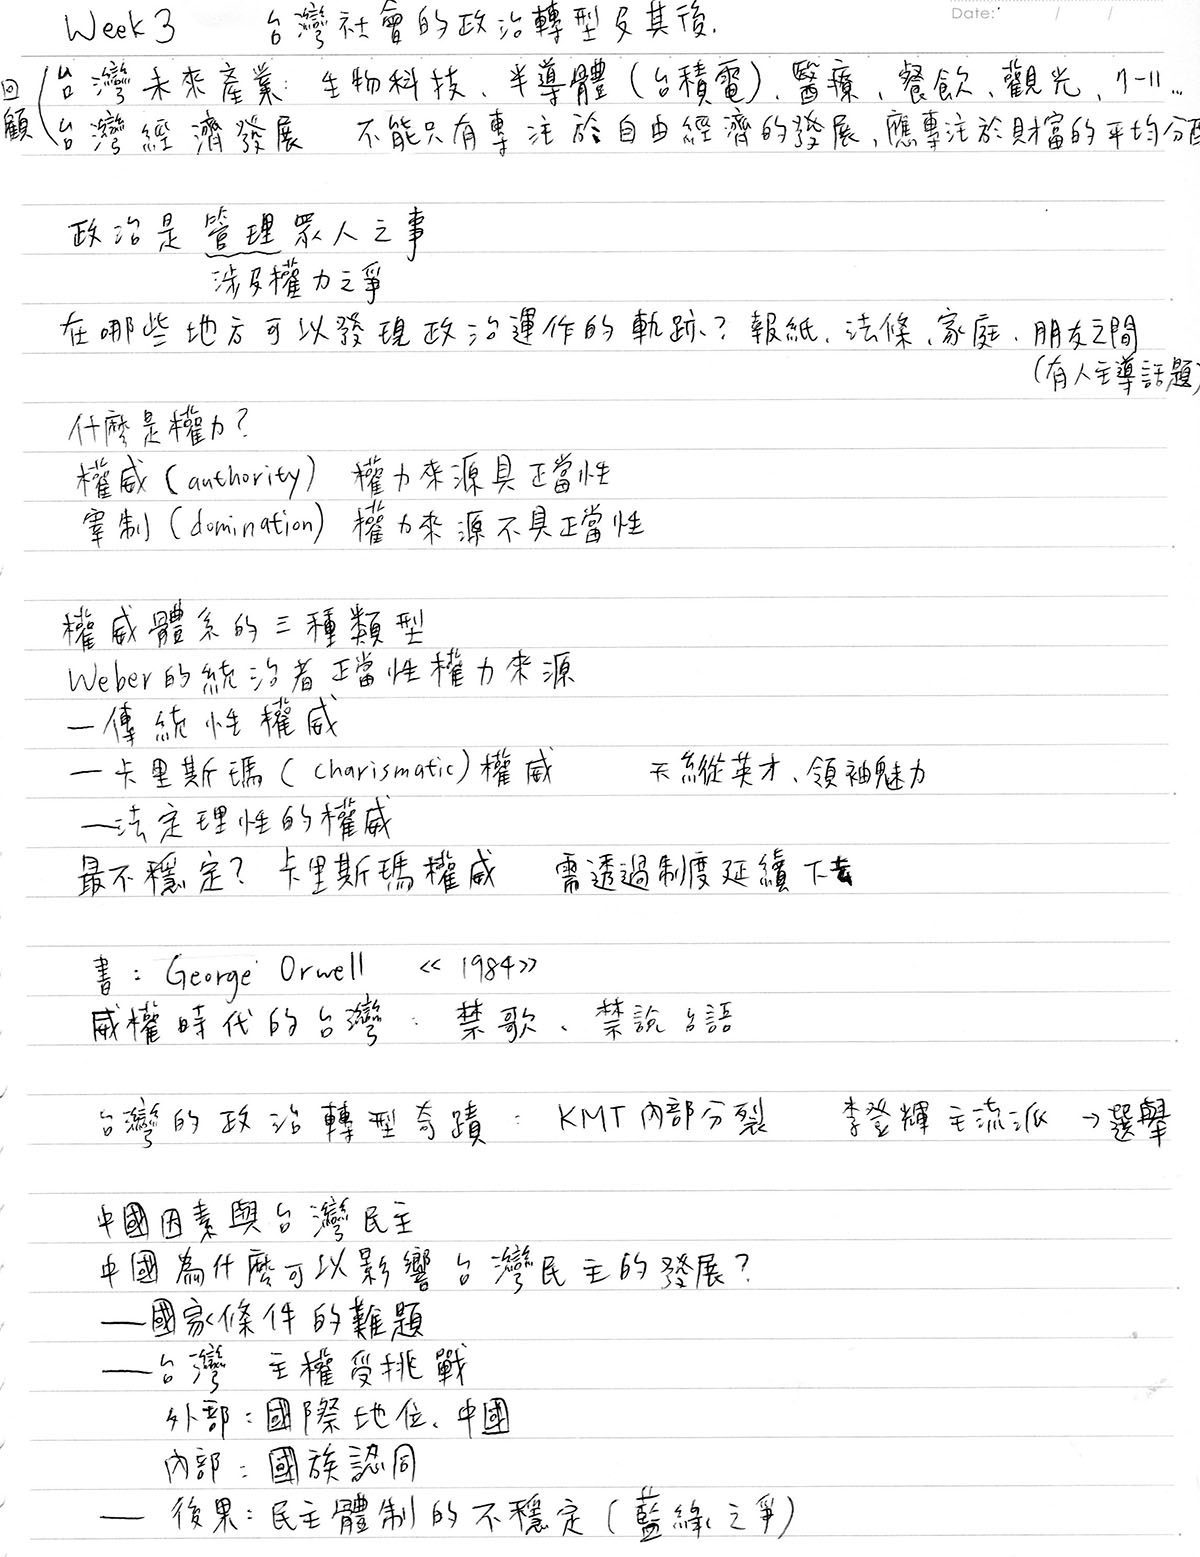 Date: / /
Week 3 台灣社會的政治轉型及其後.
回顧
台灣未來產業: 生物科技、半導體(台積電)、醫療、餐飲、觀光、7-11...
台灣經濟發展 不能只有專注於自由經濟的發展,應專注於財富的平均分配
政治是管理眾人之事
涉及權力之爭
在哪些地方可以發現政治運作的軌跡? 報紙、法條、家庭、朋友之間
(有人主導話題)
什麼是權力?
權威(authority) 權力來源具正當性
宰制(domination) 權力來源不具正當性
權威體系的三種類型
Weber的統治者正當性權力來源
—傳統性權威
—卡里斯瑪(charismatic)權威 天縱英才、領袖魅力
—法定理性的權威
最不穩定? 卡里斯瑪權威 需透過制度延續下去
書: George Orwell 《1984》
威權時代的台灣: 禁歌、禁說台語
台灣的政治轉型奇蹟: KMT內部分裂 李登輝主流派→選舉
中國因素與台灣民主
中國為什麼可以影響台灣民主的發展?
—國家條件的難題
—台灣 主權受挑戰
外部:國際地位、中國
內部:國族認同
— 後果:民主體制的不穩定(藍綠之爭)